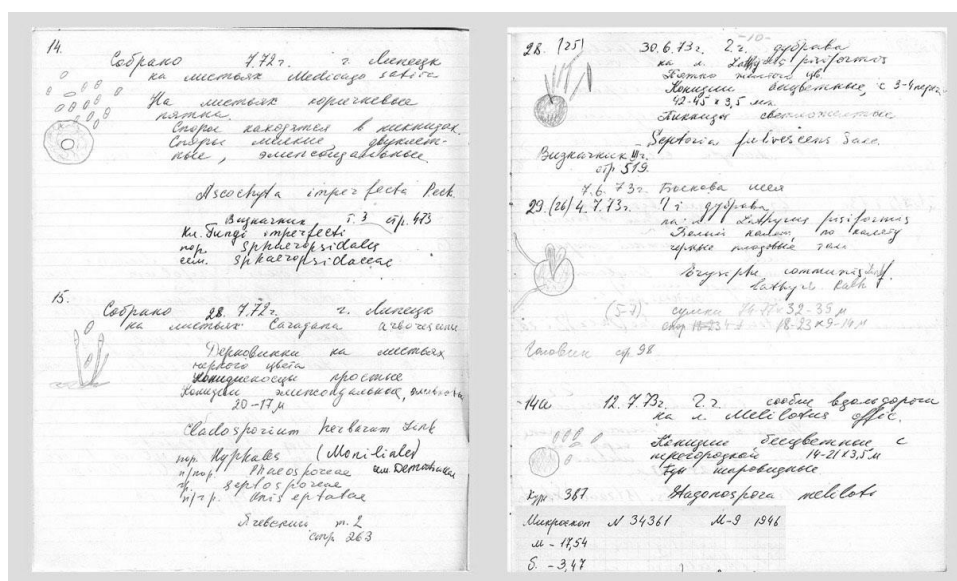 14.
Собрано 7.72г. г. Липецк
на листьях Medicago sativa
На листьях коричневые
пятна.
Споры находятся в пикнидах.
Споры мелкие двуклет-
ные, элипсоидальные.
Ascochyta imperfecta Peck.
Визначник т. 3 стр. 473
Кл. Fungi imperfecti
пор. Sphaeropsidales
сем. Sphaeropsidaceae
15.
Собрано 28. 7.72г. г. Липецк
на листьях Caragana
Дерновинки на листьях
черного цвета
Конидиеносцы простые
Конидии элипсоидальные,
20-17 μ
Cladosporium herbarum Link
пор. Hyphales (Moniliales)
п/пор. Phaeosporeae сем. Dematiaceae
гр. Septosporeae
п/гр. Uniseptatae
Ячевский т. 2
стр 263
-10-
28. (25) 30.6.73г. дубрава
на л. Lathyrus pisiformis
Пятно желтого цв.
Конидии бесцветные, с 3-4 перег.
42-45 x 3,5 мк.
Пикниды
Septoria fulvescens Sacc.
Визначник III т.
стр 519.
7.6.73г.
29. (26) 4.7.73г. дубрава
на л. Lathyrus pisiformis
Белый налет, по налету
черные плодовые тела
Erysiphe communis
lathyri Rabh
(5-7) сумки 74-77 x 32-35 μ
спор 18-23 x 9-14 μ
Головин стр. 98
14а 12.7.73г. вдоль дороги
на л. Melilotus offic.
Конидии бесцветные с
перегородкой 14-21 x 3,5 μ
шаровидные
387 Stagonospora meliloti
Микроскоп N 34361 М-9 1946
м - 17,54
б. - 3,47